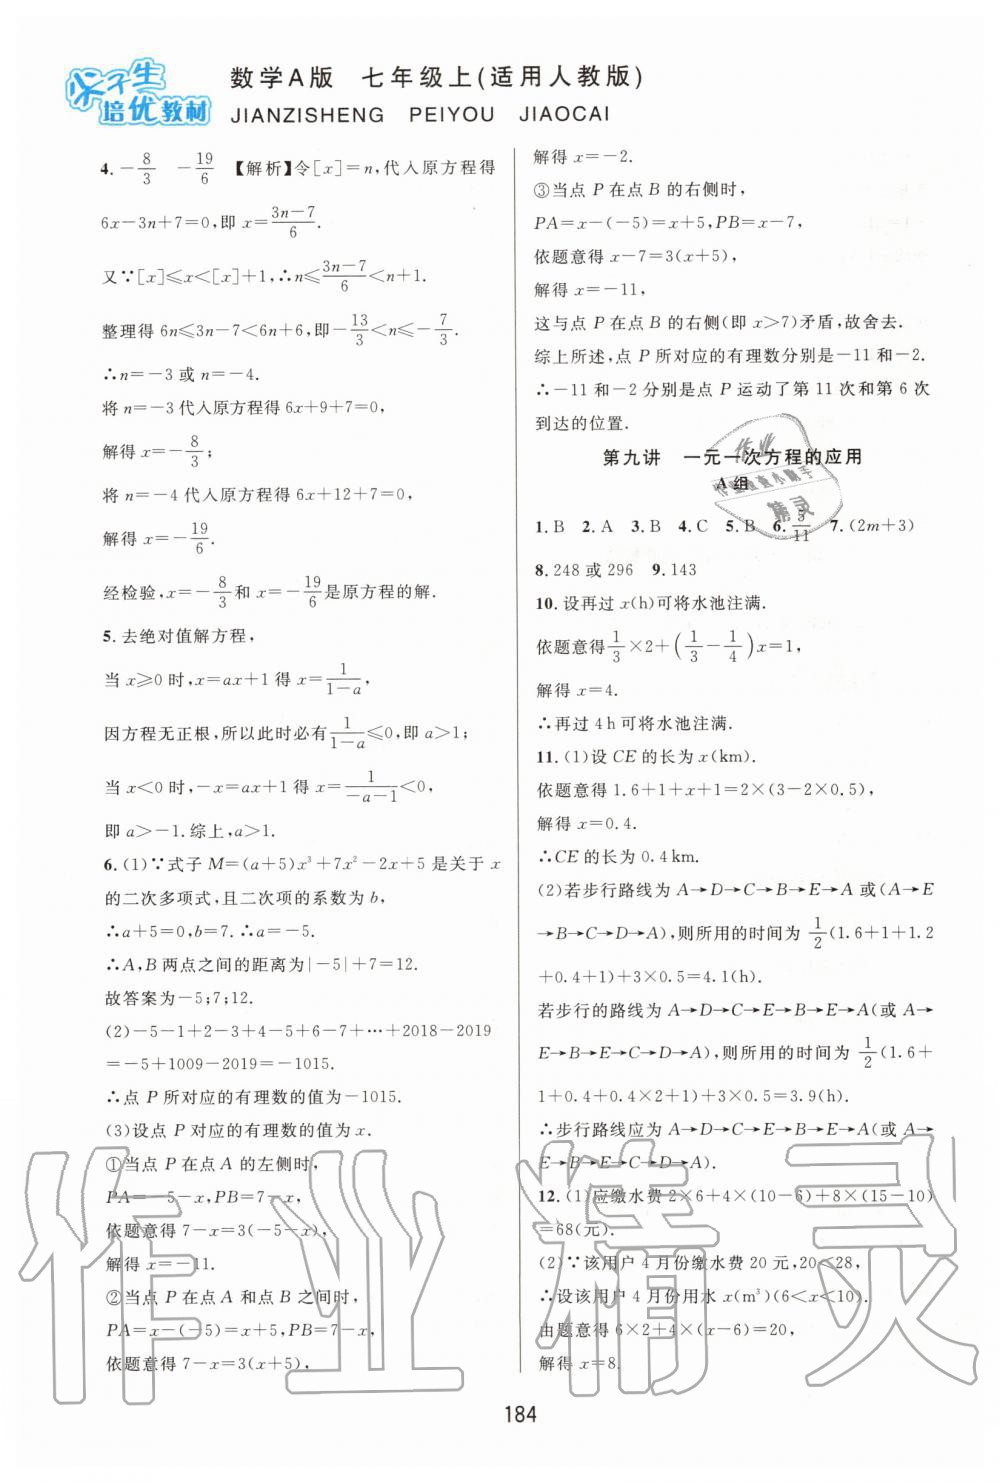 尖子生
培优教材
数学A版 七年级上(适用人教版)
JIANZISHENG PEIYOU JIAOCAI
4.-8/3 -19/6 【解析】令[x]=n,代入原方程得
6x-3n+7=0,即 x=(3n-7)/6.
又∵[x]≤x<[x]+1,∴n≤(3n-7)/6<n+1.
整理得 6n≤3n-7<6n+6,即-13/3<n≤-7/3.
∴n=-3 或 n=-4.
将 n=-3 代入原方程得 6x+9+7=0,
解得 x=-8/3;
将 n=-4 代入原方程得 6x+12+7=0,
解得 x=-19/6.
经检验,x=-8/3和 x=-19/6是原方程的解.
5.去绝对值解方程,
当 x≥0 时,x=ax+1 得 x=1/(1-a),
因方程无正根,所以此时必有1/(1-a)≤0,即 a>1;
当 x<0 时,-x=ax+1 得 x=1/(-a-1)<0,
即 a>-1.综上,a>1.
6.(1)∵式子 M=(a+5)x³+7x²-2x+5 是关于 x
的二次多项式,且二次项的系数为 b,
∴a+5=0,b=7.∴a=-5.
∴A,B 两点之间的距离为|-5|+7=12.
故答案为-5;7;12.
(2)-5-1+2-3+4-5+6-7+…+2018-2019
=-5+1009-2019=-1015.
∴点 P 所对应的有理数的值为-1015.
(3)设点 P 对应的有理数的值为 x.
①当点 P 在点 A 的左侧时,
PA=-5-x,PB=7-x,
依题意得 7-x=3(-5-x),
解得 x=-11.
②当点 P 在点 A 和点 B 之间时,
PA=x-(-5)=x+5,PB=7-x,
依题意得 7-x=3(x+5),
解得 x=-2.
③当点 P 在点 B 的右侧时,
PA=x-(-5)=x+5,PB=x-7,
依题意得 x-7=3(x+5),
解得 x=-11,
这与点 P 在点 B 的右侧(即 x>7)矛盾,故舍去.
综上所述,点 P 所对应的有理数分别是-11 和-2.
∴-11 和-2 分别是点 P 运动了第 11 次和第 6 次
到达的位置.
第九讲 一元一次方程的应用
A 组
1.B 2.A 3.B 4.C 5.B 6.3/11 7.(2m+3)
8.248 或 296 9.143
10.设再过 x(h)可将水池注满.
依题意得1/3×2+(1/3-1/4)x=1,
解得 x=4.
∴再过 4 h 可将水池注满.
11.(1)设 CE 的长为 x(km).
依题意得 1.6+1+x+1=2×(3-2×0.5),
解得 x=0.4.
∴CE 的长为 0.4 km.
(2)若步行路线为 A→D→C→B→E→A 或(A→E
→B→C→D→A),则所用的时间为 1/2(1.6+1+1.2
+0.4+1)+3×0.5=4.1(h).
若步行的路线为 A→D→C→E→B→E→A(或 A→
E→B→E→C→D→A),则所用的时间为 1/2(1.6+
1+0.4+0.4×2+1)+3×0.5=3.9(h).
∴步行路线应为 A→D→C→E→B→E→A(或 A→
E→B→E→C→D→A).
12.(1)应缴水费 2×6+4×(10-6)+8×(15-10)
=68(元).
(2)∵该用户 4 月份缴水费 20 元,20<28,
∴设该用户 4 月份用水 x(m³)(6<x<10).
由题意得 6×2+4×(x-6)=20,
解得 x=8.
184
作业精灵